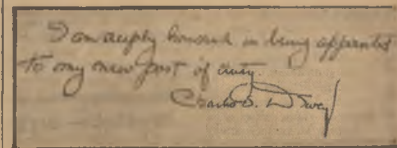 I am deeply honored in being appointed
to my new post of duty.
Charles S. Dewey